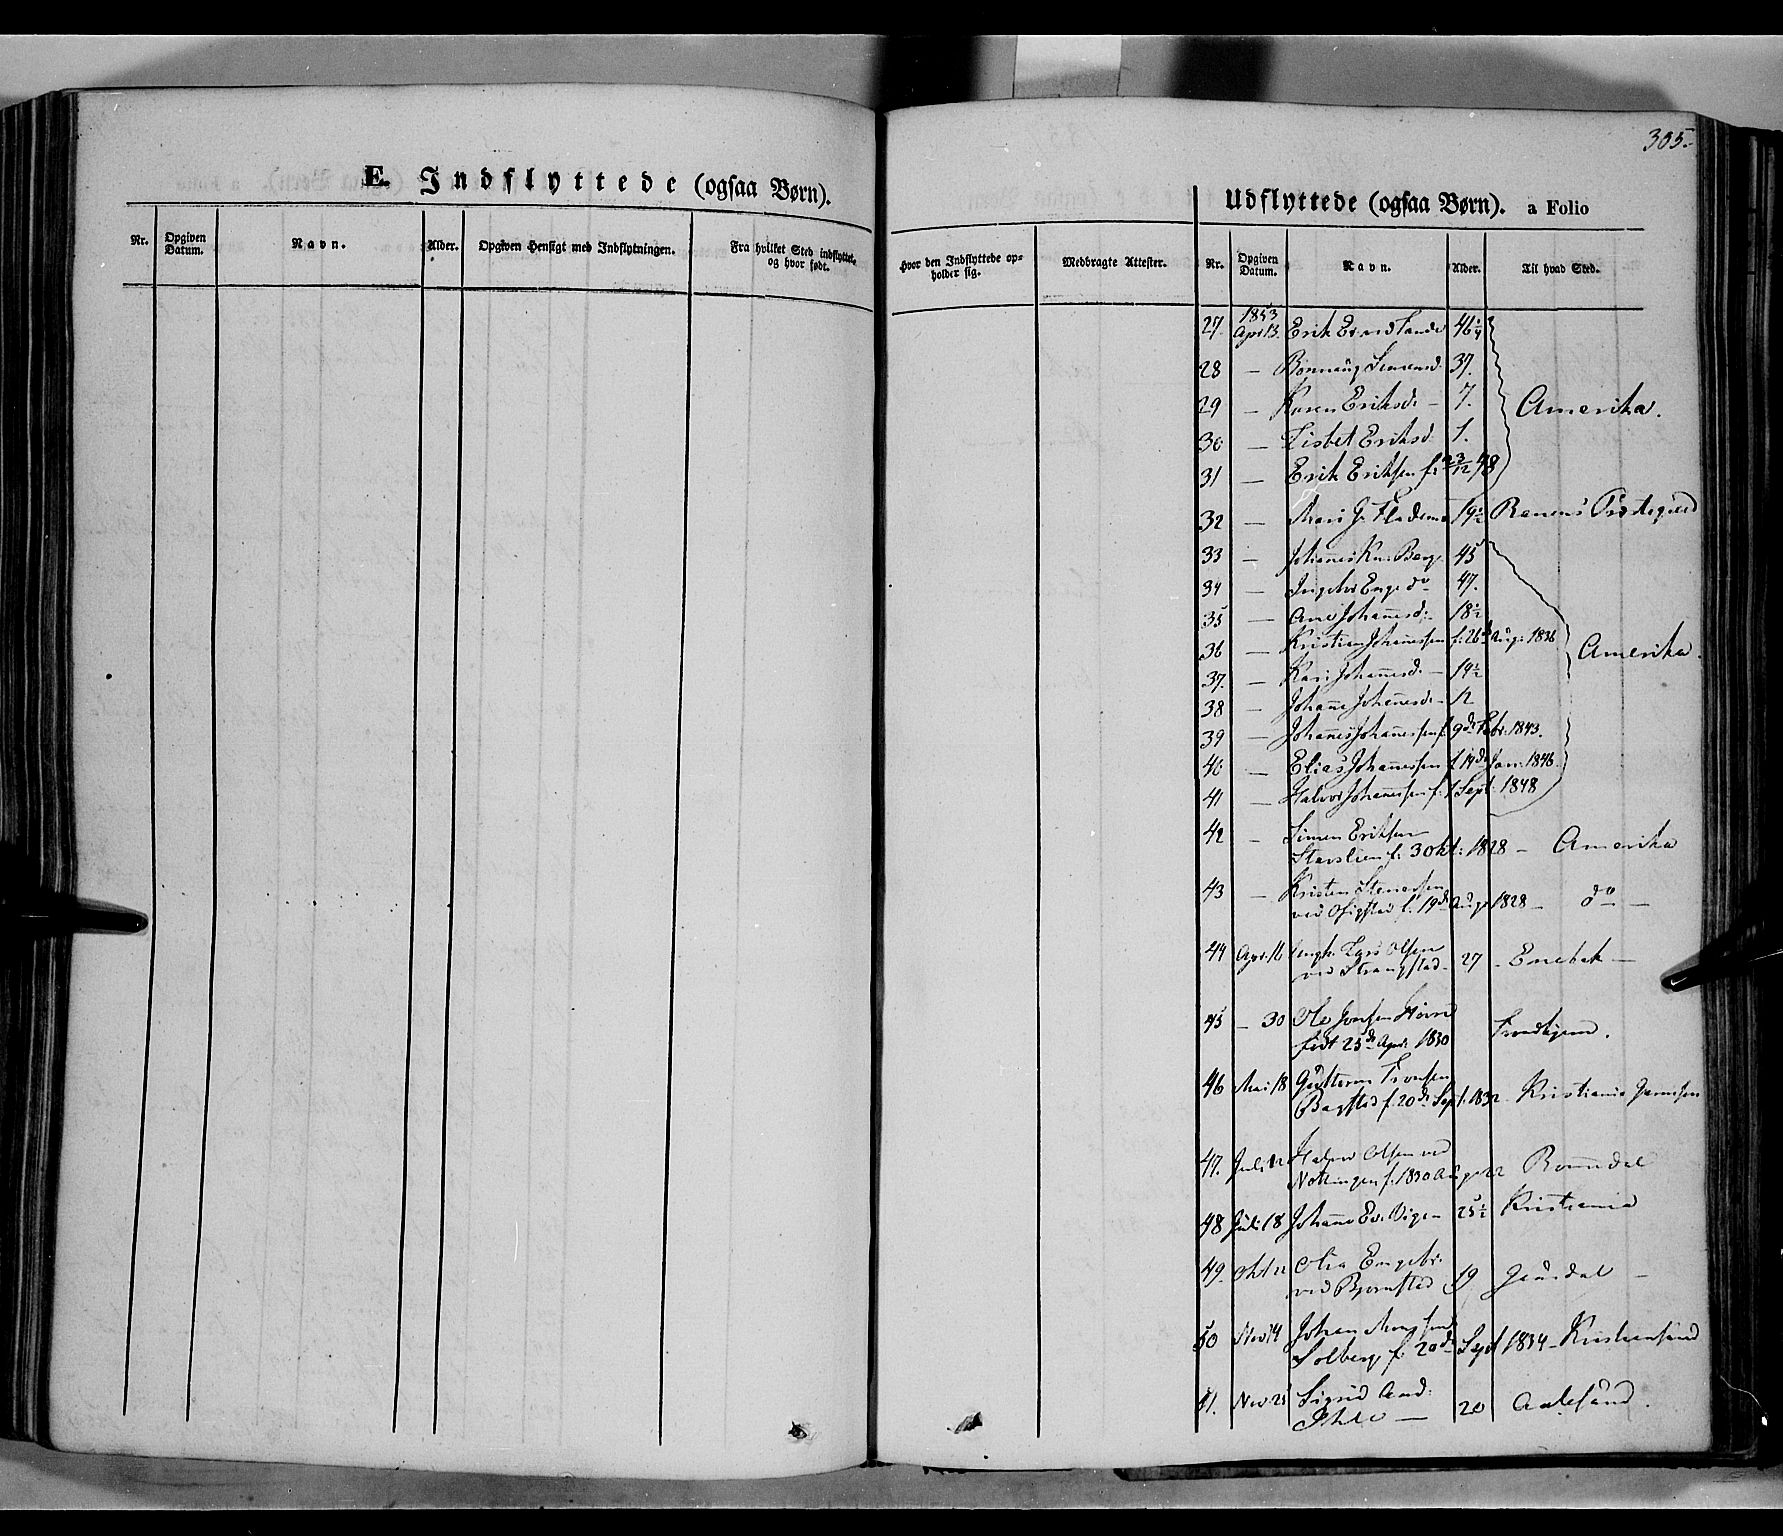 305.
E. Indflyttede (ogsaa Børn).
Nr.
Opgiven Datum.
Navn.
Alder.
Opgiven Hensigt med Indflytningen.
Fra hvilket Sted indflyttet, og hvor født.
Hvor den Indflyttede opholder sig.
Medbragte Attester.
Udflyttede (ogsaa Børn). a Folio
Nr.
Opgiven Datum.
Navn.
Alder.
Til hvad Sted.
1853
27. Apr. 13. Erik 46 1/4
28 — Rønnaug Simensd. 37.
29 — Karen Eriksd. — 7. Amerika.
30 — Lisbet Eriksd. 1.
31 — Erik Eriksen f. 23/12 48
32 — Mari G. 19 1/2 Ranens Præstegield
33 — Johannes Kn. Berg 45
34 — Ingebor Enge do 47.
35 — Ane Johannesd. 18 1/2
36 — Kristian Johannessen f. 26de Aug. 1836 Amerika.
37. — Kari Johannesd. — 14 1/2
38 — Johanne Johannesd. — 12
39 — Johannes Johannessen f. 9de Febr. 1843.
40 — Elias Johannessen f. 19de Jan. 1846.
41 — Halvor Johannessen f. 1 Sept. 1848
42 — Simen Eriksen
Starslien f. 3 Okt. 1828 — Amerika
43 — Kristen
ved f. 19de Aug. 1828 — do —
44 Apr. 16 Lars Olsen
ved 27 — Enebak —
45 — 30 Ole
født 25de Apr. 1830 Trondhjem.
46 Mai 18 Guttorm Tronsen
Bagstad f. 20de Sept. 1832 Kristiania
47. Juli 12 Halvor Olsen ved
f. 1830 Aug. 22 Romsdal
48 Juli 18 Johannes 25 1/2 Kristiania
49. Okt 12 Olia Engebr.
ved Bjørnstad 19 Gausdal —
50 Nov 14 Johan
Solberg f. 20de Sept 1834 — Kristiansund
51. Nov 25 Sigrid And.
— 20 Aalesund.